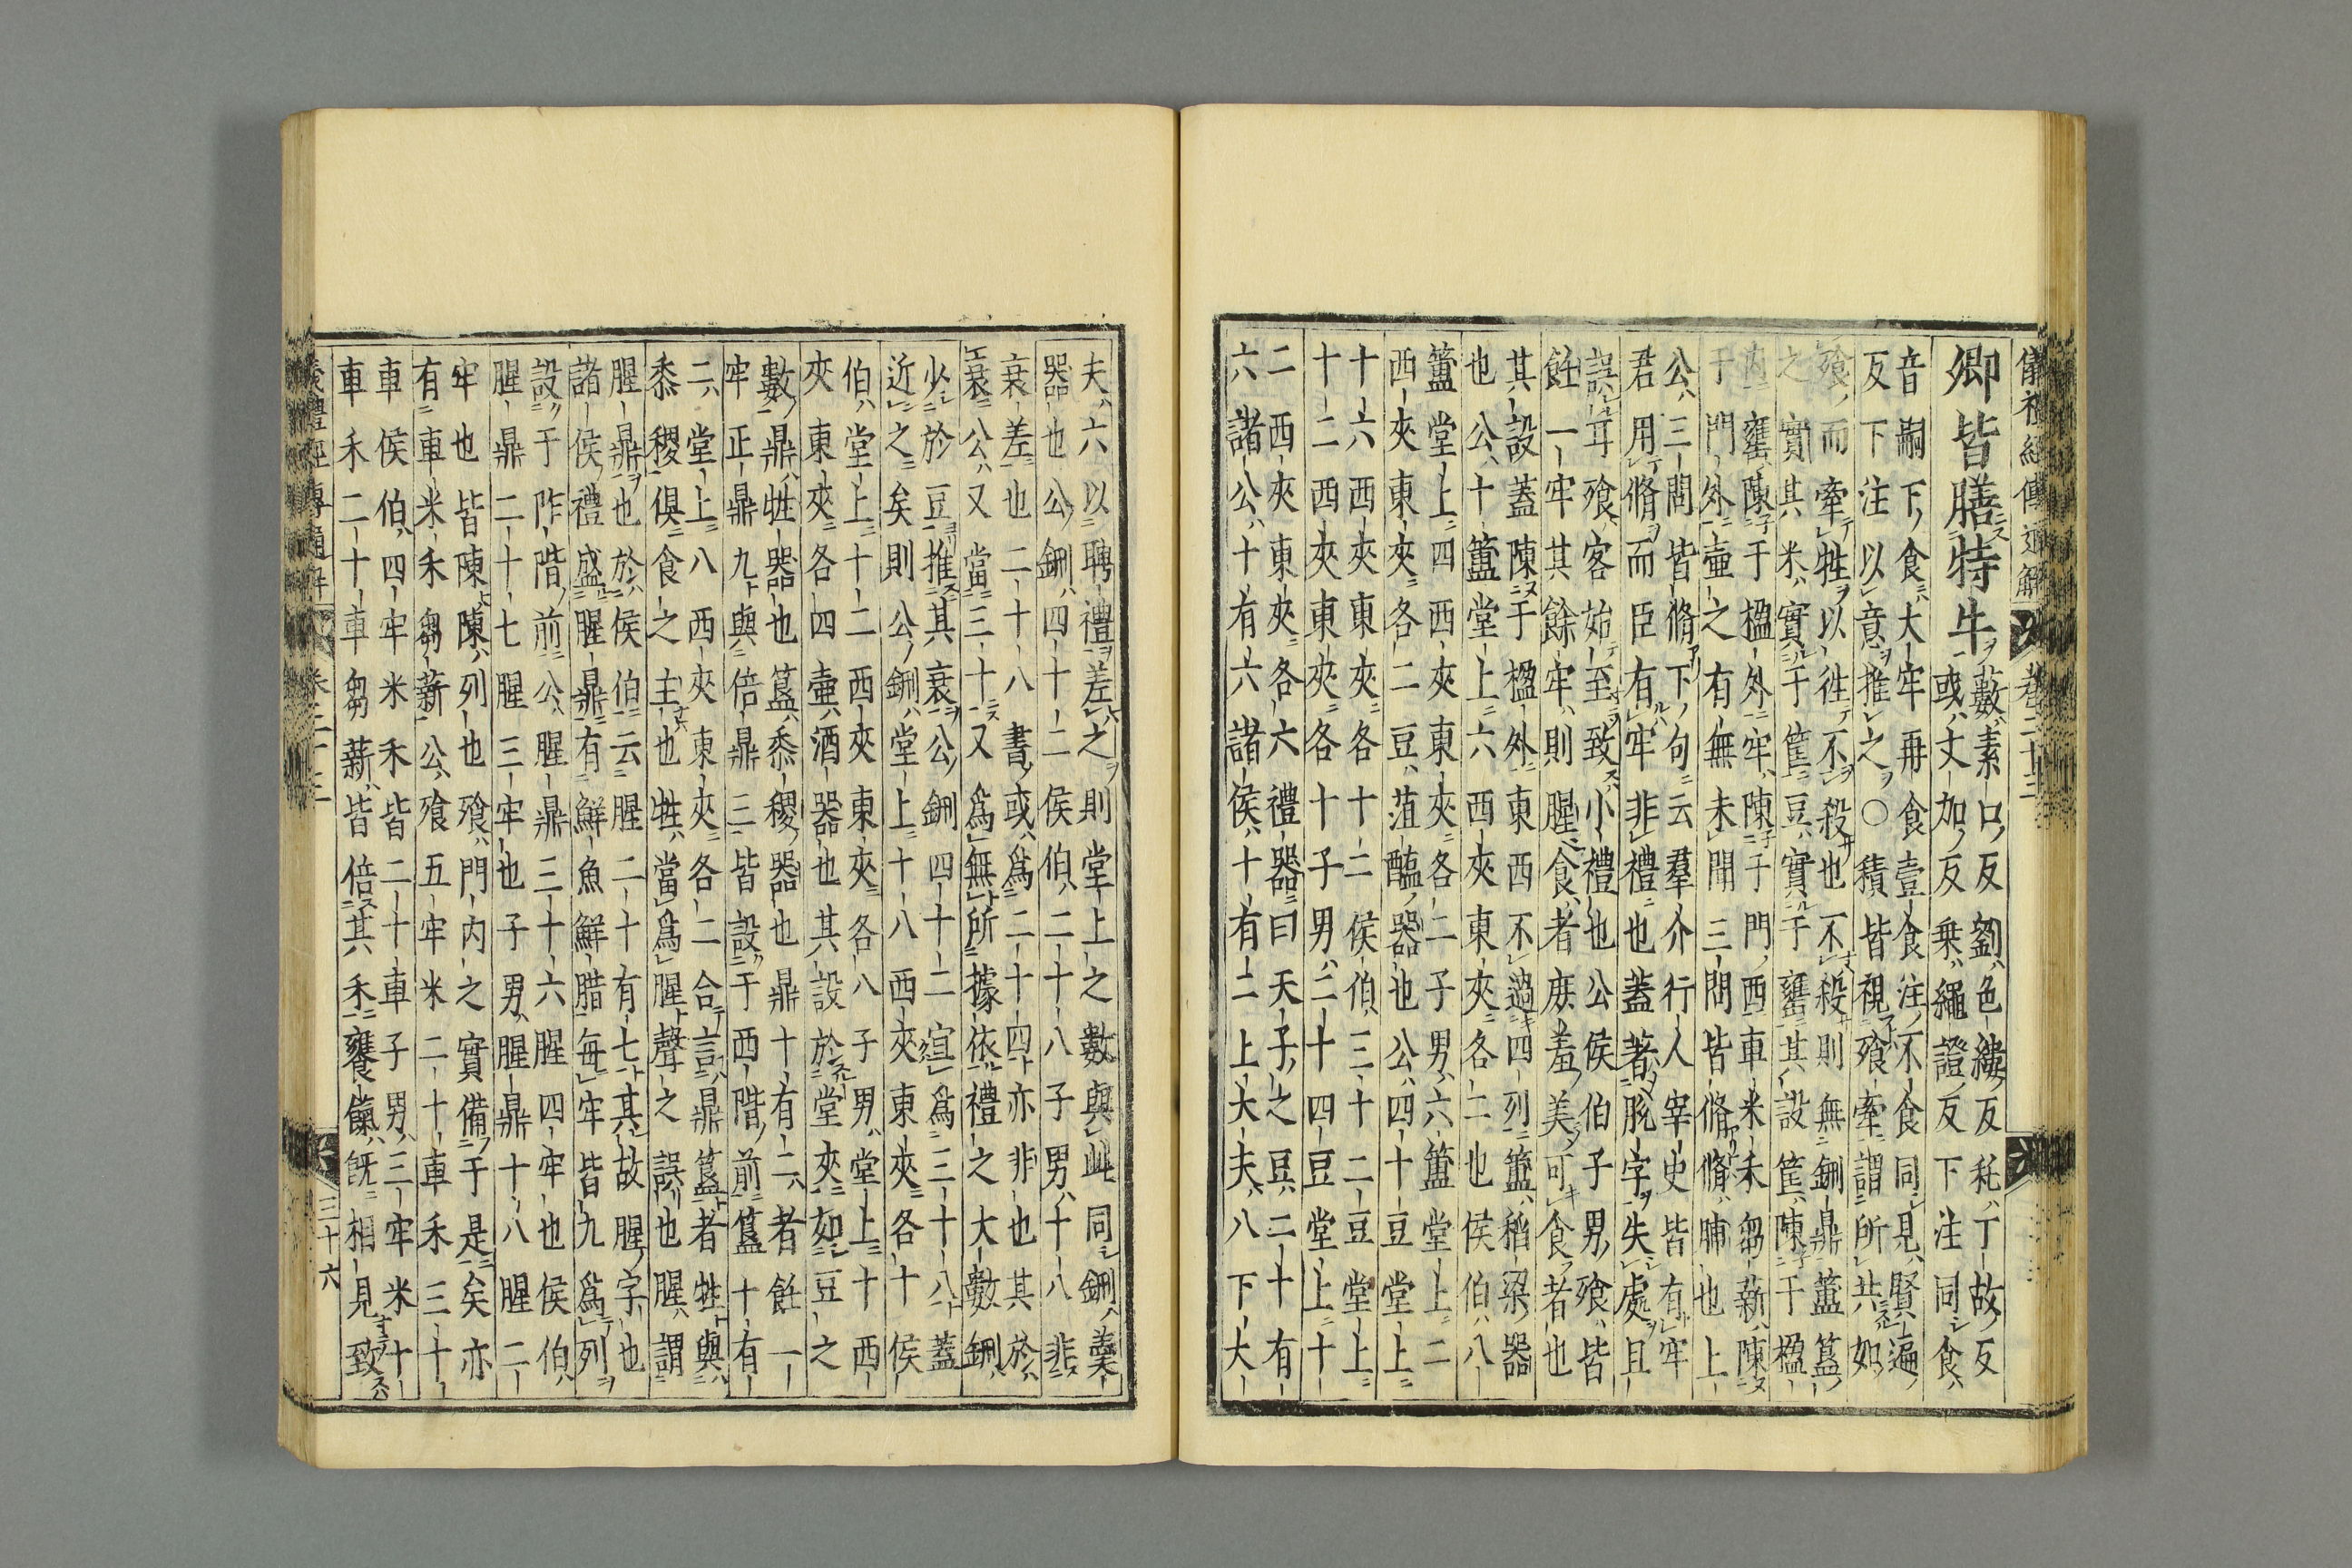 儀禮經傳通解 卷二十三
卿皆膳特牛
藪素口反劉色縷反秅丁故反
或丈加反乗繩證反下注同食
音嗣下食大牢再食壹食注不食同見賢遍
反下注以意推之○積皆視飧牽謂所共如
飧而牽牲以徃不殺也不殺則無鉶鼎簠簋
之實其米實于筐豆實于罋其設筐陳于楹
内罋陳于楹外牢陳于門西車米禾芻薪陳
于門外壷之有無未聞三問皆脩脩脯也上
公三問皆脩下句云羣介行人宰史皆有牢
君用脩而臣有牢非禮也蓋著脫字失處且
誤耳飧客始至致小禮也公侯伯子男飧皆
飪一牢其餘牢則腥食者庶羞美可食者也
其設蓋陳于楹外東西不過四列簠稻梁器
也公十簠堂上六西夾東夾各二也侯伯八
簠堂上四西夾東夾各二子男六簠堂上二
西夾東夾各二豆菹醢器也公四十豆堂上
十六西夾東夾各十二侯伯三十二豆堂上
十二西夾東夾各十子男二十四豆堂上十
二西夾東夾各六禮器曰天子之豆二十有
六諸公十有六諸侯十有二上大夫八下大
夫六以聘禮差之則堂上之數與此同鉶羹
器也公鉶四十二侯伯二十八子男十八非
衰差也二十八書或為二十四亦非也其於
衰公又當三十又為無所據依禮之大數鉶
少於豆推其衰公鉶四十二宜為三十八蓋
近之矣則公鉶堂上十八西夾東夾各十侯
伯堂上十二西夾東夾各八子男堂上十西
夾東夾各四壷酒器也其設於堂夾如豆之
數鼎牲器也簋黍稷器也鼎十有二者飪一
牢正鼎九與倍鼎三皆設于西階前簋十有
二堂上八西夾東夾各二合言鼎簋者牲與
黍稷俱食之主也牲當為腥聲之誤也腥謂
腥鼎也於侯伯云腥二十有七其故腥字也
諸侯禮盛腥鼎有鮮魚鮮腊每牢皆九為列
設于阼階前公腥鼎三十六腥四牢也侯伯
腥鼎二十七腥三牢也子男腥鼎十八腥二
牢也皆陳陳列也飧門内之實備于是矣亦
有車米禾芻薪公飧五牢米二十車禾三十
車侯伯四牢米禾皆二十車子男三牢米十
車禾二十車芻薪皆倍其禾饔餼既相見致
儀禮經傳通解 卷二十三 三十六